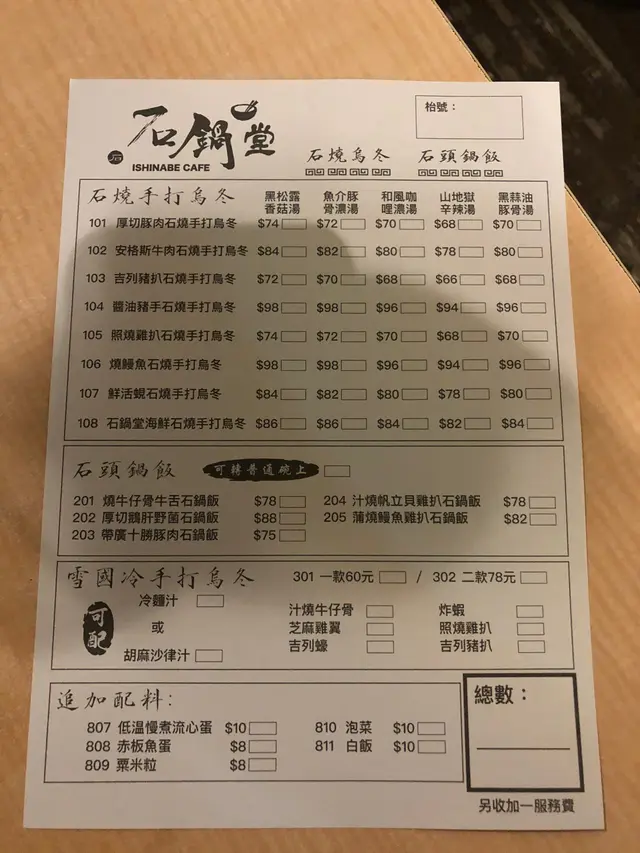 石鍋堂
石
ISHINABE CAFE
枱號：
石燒烏冬 石頭鍋飯
石燒手打烏冬 黑松露香菇湯 魚介豚骨濃湯 和風咖喱濃湯 山地獄辛辣湯 黑蒜油豚骨湯
101 厚切豚肉石燒手打烏冬 $74 $72 $70 $68 $70
102 安格斯牛肉石燒手打烏冬 $84 $82 $80 $78 $80
103 吉列豬扒石燒手打烏冬 $72 $70 $68 $66 $68
104 醬油豬手石燒手打烏冬 $98 $98 $96 $94 $96
105 照燒雞扒石燒手打烏冬 $74 $72 $70 $68 $70
106 燒鰻魚石燒手打烏冬 $98 $98 $96 $94 $96
107 鮮活蜆石燒手打烏冬 $84 $82 $80 $78 $80
108 石鍋堂海鮮石燒手打烏冬 $86 $86 $84 $82 $84
石頭鍋飯 可轉普通碗上
201 燒牛仔骨牛舌石鍋飯 $78 204 汁燒帆立貝雞扒石鍋飯 $78
202 厚切鵝肝野菌石鍋飯 $88 205 蒲燒鰻魚雞扒石鍋飯 $82
203 帶廣十勝豚肉石鍋飯 $75
雪國冷手打烏冬 301 一款60元 / 302 二款78元
可配
冷麵汁
或
胡麻沙律汁
汁燒牛仔骨 炸蝦
芝麻雞翼 照燒雞扒
吉列蠔 吉列豬扒
追加配料：
807 低溫慢煮流心蛋 $10 810 泡菜 $10
808 赤板魚蛋 $8 811 白飯 $10
809 粟米粒 $8
總數：
另收加一服務費